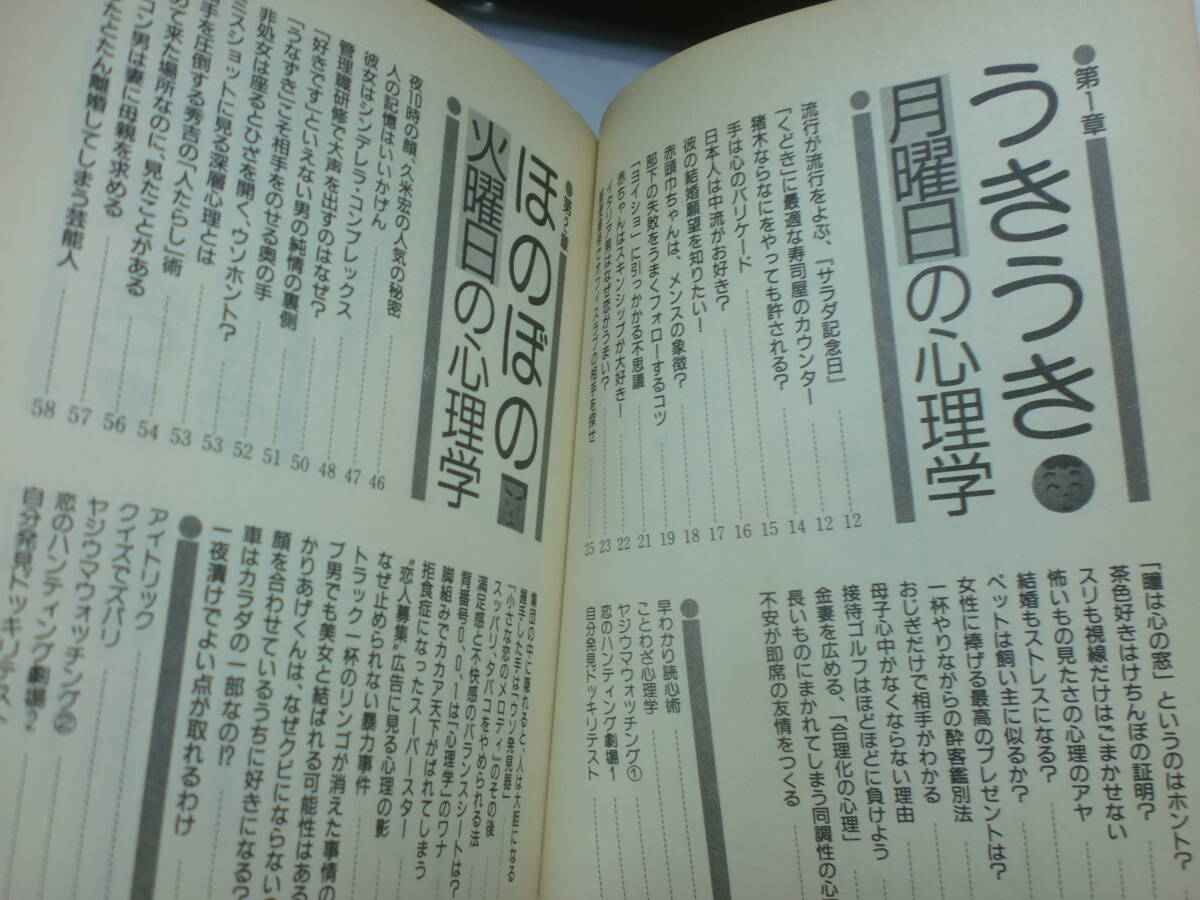 ●第1章
うきうき
月曜日の心理学
流行が流行をよぶ、『サラダ記念日』 12
「くどき」に最適な寿司屋のカウンター 12
猪木ならなにをやっても許される? 14
手は心のバリケード 15
日本人は中流がお好き? 16
彼の結婚願望を知りたい! 17
赤頭巾ちゃんは、メンスの象徴? 18
部下の失敗をうまくフォローするコツ 19
「ヨイショ」に引っかかる不思議 21
赤ちゃんはスキンシップが大好き! 22
イタリア男はなぜ恋がうまい? 23
オフィスラブの相手を探せ 25
「瞳は心の窓」というのはホント?
茶色好きはけちんぼの証明?
スリも視線だけはごまかせない
怖いもの見たさの心理のアヤ
結婚もストレスになる?
ペットは飼い主に似るか?
女性に捧げる最高のプレゼントは?
一杯やりながらの酔客鑑別法
おじぎだけで相手がわかる
母子心中がなくならない理由
接待ゴルフはほどほどに負けよう
金妻を広める、「合理化の心理」
長いものにまかれてしまう同調性の心
不安が即席の友情をつくる
早わかり読心術
ことわざ心理学
ヤジウマウォッチング①
恋のハンティング劇場1
自分発見ドッキリテスト
●第2章
ほのぼの
火曜日の心理学
夜10時の顔、久米宏の人気の秘密 46
人の記憶はいいかげん 47
彼女はシンデレラ・コンプレックス 48
管理職研修で大声を出すのはなぜ? 50
「好きです」といえない男の純情の裏側 51
「うなずき」こそ相手をのせる奥の手 52
非処女は座るとひざを開く、ウソホント? 53
ミスショットに見る深層心理とは 53
手を圧倒する秀吉の「人たらし」術 54
めて来た場所なのに、見たことがある 56
コン男は妻に母親を求める 57
たとたん離婚してしまう芸能人 58
集団の中に隠れると、人は大胆になる
握手した手は「ウソ発見器」
「小さな恋のメロディ」のその後
スッパリ、タバコをやめられる法
満足感と不快感のバランスシートは?
背番号0、0、1は「心理学」のワナ
脚組みでカカア天下がばれてしまう
拒食症になったスーパースター
"恋人募集"広告に見る心理の影
なぜ止められない暴力事件
トラック一杯のリンゴが消えた事情の
ブ男でも美女と結ばれる可能性はある
かりあげくんは、なぜクビにならない
顔を合わせているうちに好きになる?
車はカラダの一部なの!?
一夜漬けでよい点が取れるわけ
アイトリック
クイズでズバリ
ヤジウマウォッチング②
恋のハンティング劇場2
自分発見ドッキリテス